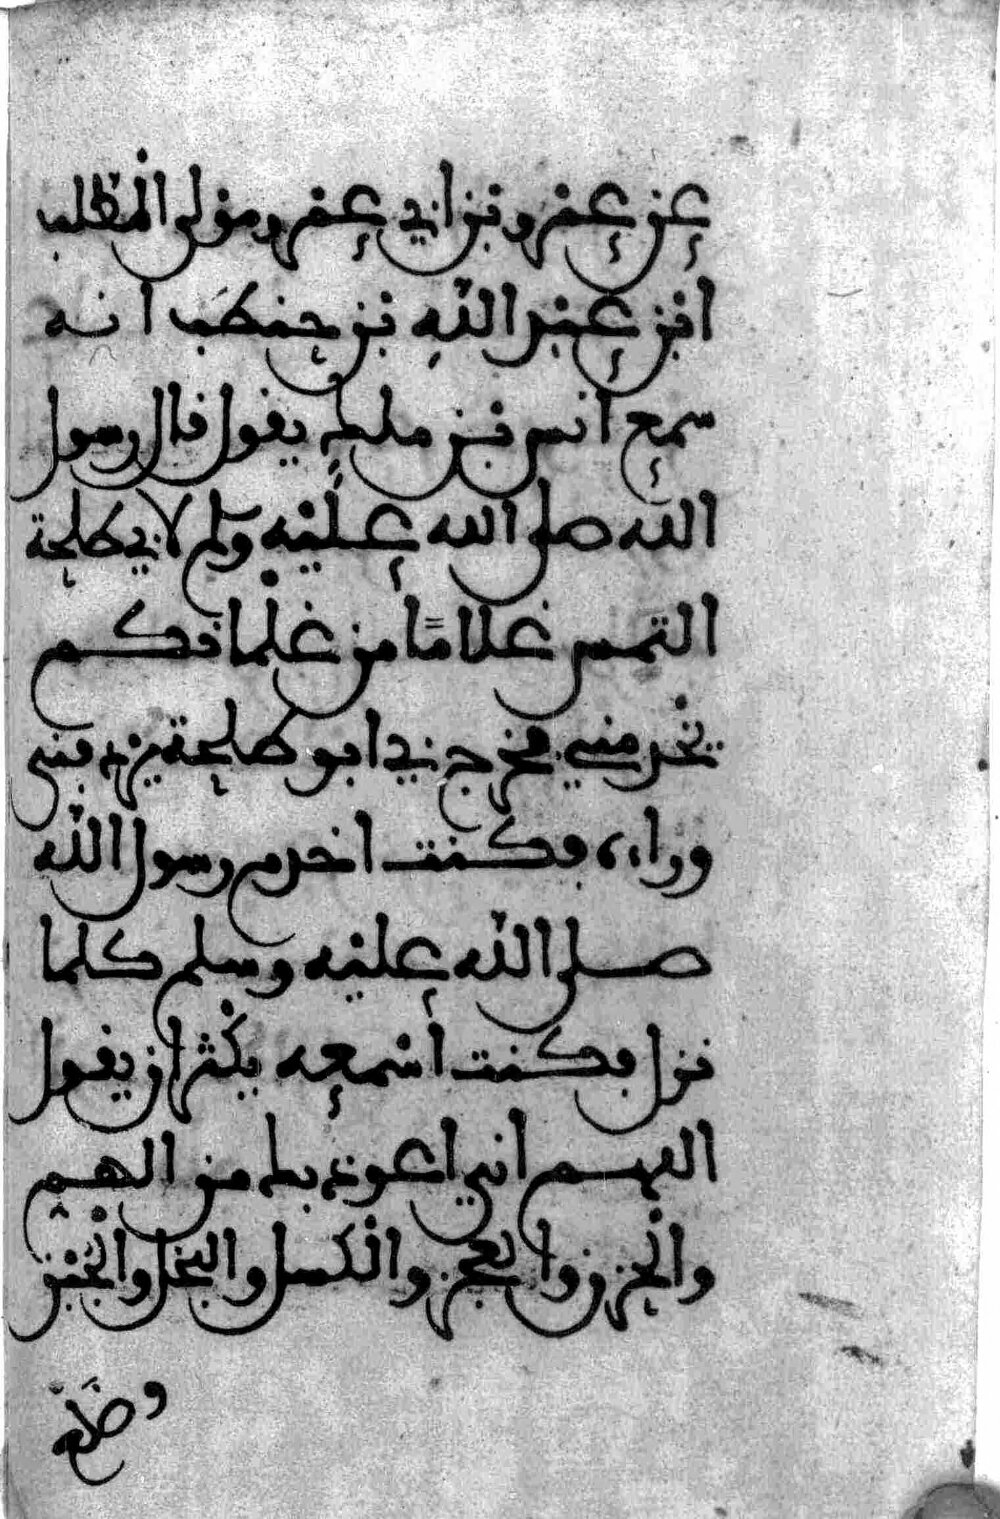 عن عمرو بن ابي عمرو مولى المطلب
ابن عبد الله بن حنطب انه
سمع انس بن ملك يقول قال رسول
الله صلى الله عليه وسلم لابي طلحة
التمس غلامًا من غلمانكم
يخدمني فخرج بي ابو طلحة يردفني
وراءه فكنت اخدم رسول الله
صلى الله عليه وسلم كلما
نزل فكنت أسمعه يكثر ان يقول
اللهم اني اعوذ بك من الهم
والحزن والعجز والكسل والبخل والجبن
وضلع